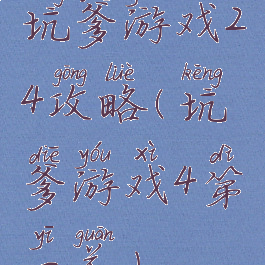 坑爹游戏2
gōng lüè kēng
4攻略(坑
diē yóu xì dì
爹游戏4第
yī guān